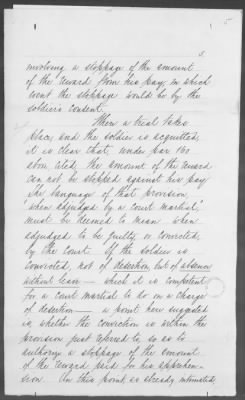 5
5.
involving a stoppage of the amount
of the reward from his pay, in which
event the stoppage would be by the
soldier's consent.
When a trial takes
place, and the soldier is acquitted,
it is clear that, under par. 160
above cited, the amount of the reward
can not be stopped against his pay.
The language of that provision,
"when adjudged by a court martial,"
must be deemed to mean when
adjudged to be guilty, or convicted,
by the court. If the soldier is
convicted, not of desertion, but of absence
without leave — which it is competent
for a court martial to do on a charge
of desertion — a point here suggested
is, whether the conviction is within the
provision just referred to, so as to
authorize a stoppage of the amount
of the reward paid for his apprehen-
sion. On this point, as already intimated,